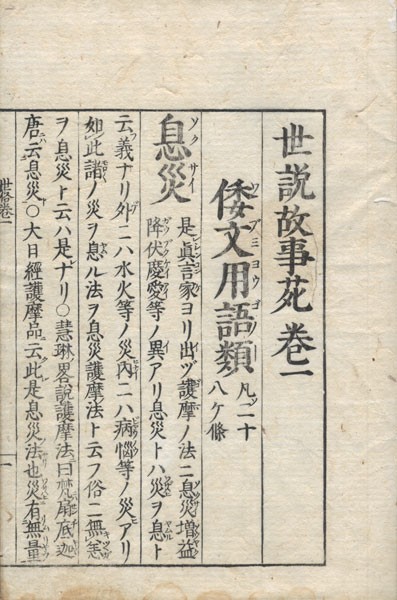 世説故事苑巻一
倭文用語類 凡二十
八ケ條
息災 是眞言家ヨリ出ヅ護摩ノ法ニ息災増益
ソクサイ
降伏慶愛等ノ異アリ息災トハ災ヲ息ト
云義ナリ外ニハ水火等ノ災内ニハ病惱等ノ災アリ
如此諸ノ災ヲ息ル法ヲ息災護摩法ト云フ俗ニ無恙
ヲ息災ト云ハ是ナリ〇慧琳畧説護摩法曰梵扇底迦
唐云息災〇大日經護摩品云此是息災法也災有無量
巻一
一